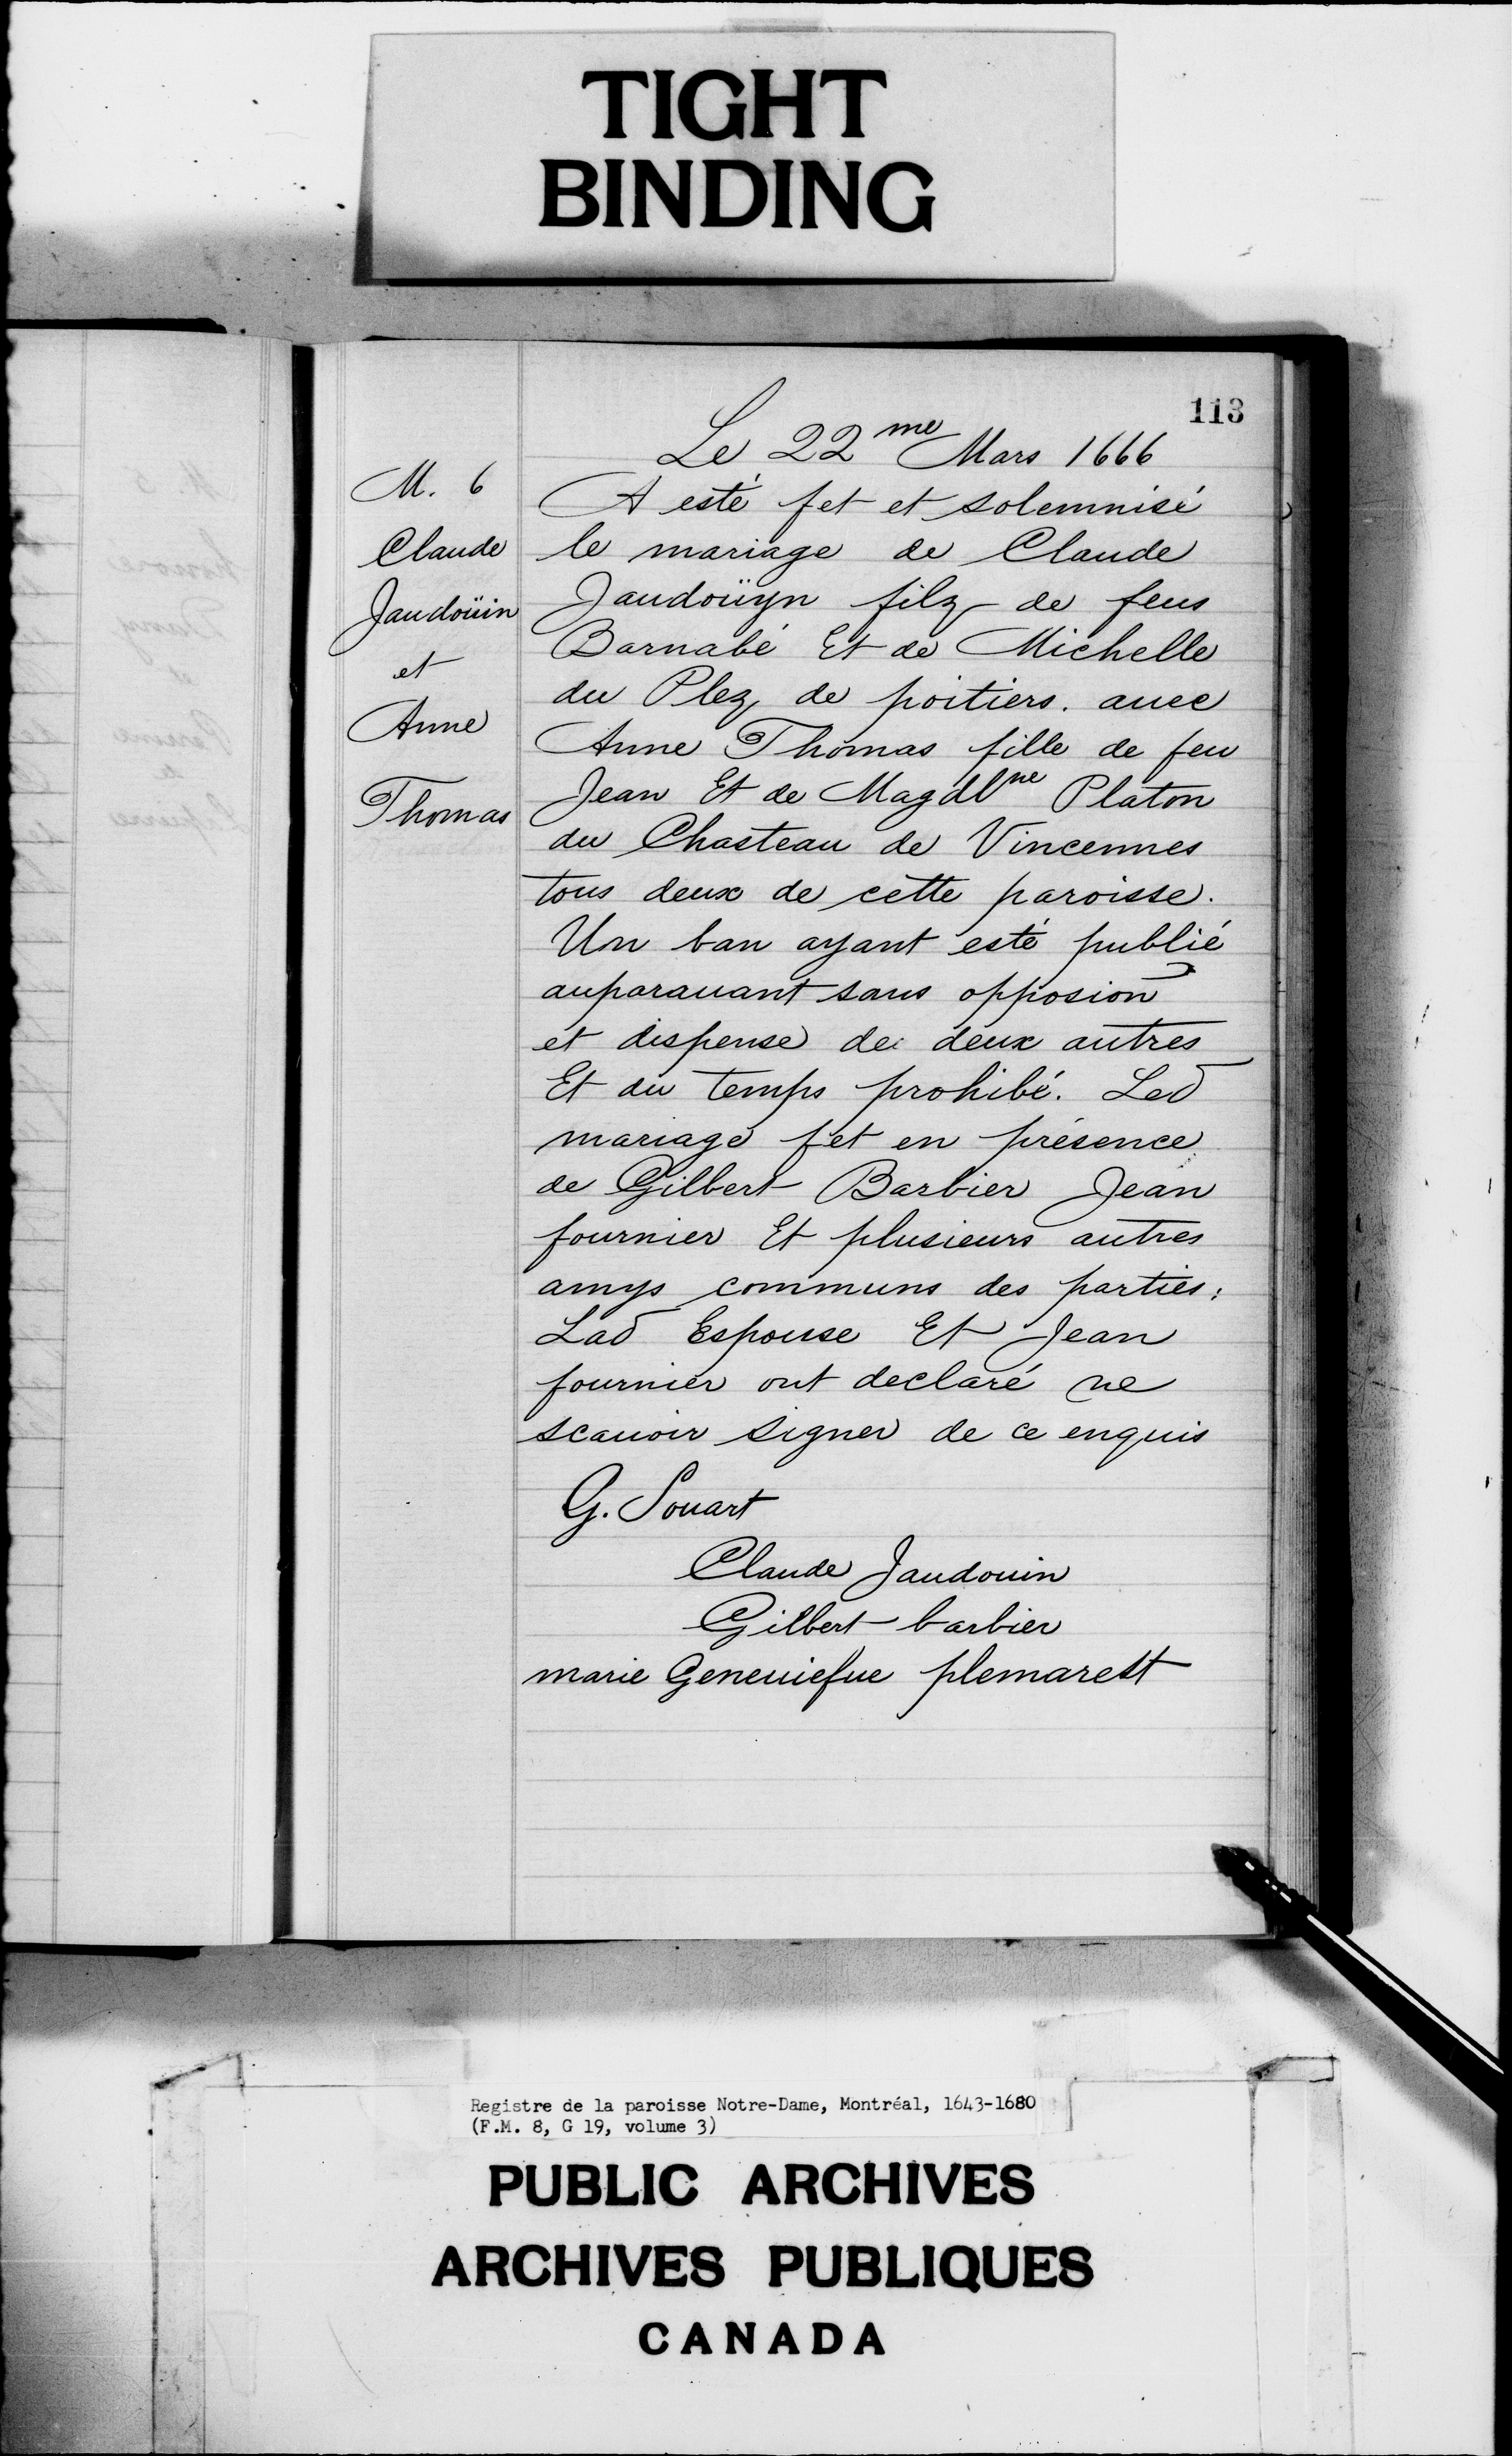 TIGHT
BINDING
113
Le 22me Mars 1666
M. 6
Claude
Jaudoüin
et
Anne
Thomas
A esté fet et solemnisé
le mariage de Claude
Jaudoüyn filz de feus
Barnabé Et de Michelle
du Plez de poitiers. auec
Anne Thomas fille de feu
Jean Et de Magdlne Platon
du Chasteau de Vincennes
tous deux de cette paroisse.
Un ban ayant esté publié
auparauant sans opposion
et dispense de deux autres
Et du temps prohibé. Led
mariage fet en présence
de Gilbert Barbier Jean
fournier Et plusieurs autres
amys communs des parties:
Lad Espouse Et Jean
fournier ont declaré ne
scauoir signer de ce enquis
G. Souart
Claude Jaudouin
Gilbert barbier
marie Geneuiefue plemarett
Registre de la paroisse Notre-Dame, Montréal, 1643-1680
(F.M. 8, G 19, volume 3)
PUBLIC ARCHIVES
ARCHIVES PUBLIQUES
CANADA